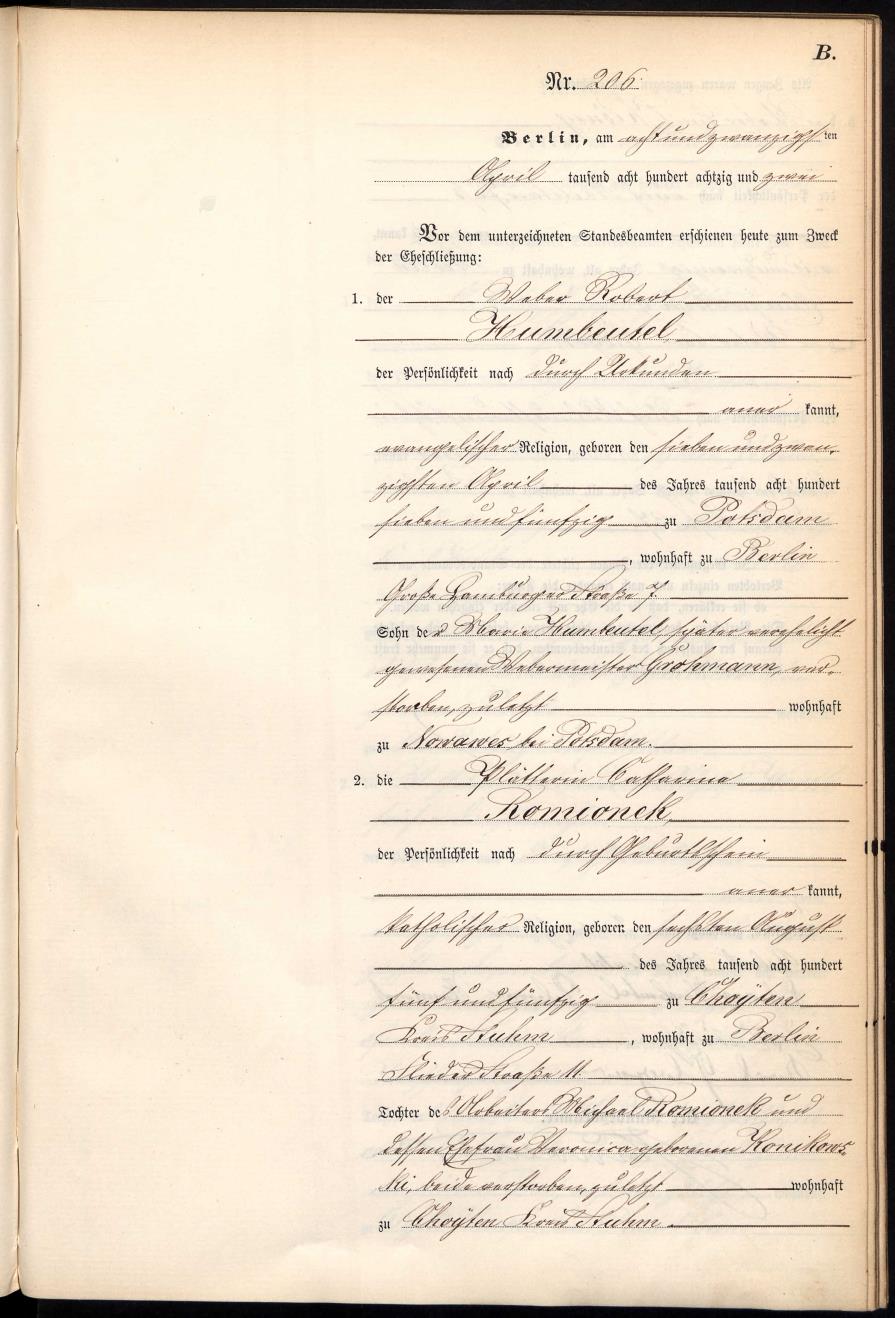 B.
Nr. 206.
Berlin, am achtundzwanzigsten
April tausend acht hundert achtzig und zwei
Vor dem unterzeichneten Standesbeamten erschienen heute zum Zweck
der Eheschließung:
1. der Weber Robert
Humbeutel
der Persönlichkeit nach durch Urkunden
anerkannt,
evangelischer Religion, geboren den sieben und zwan-
zigsten April des Jahres tausend acht hundert
sieben und fünfzig zu Potsdam
, wohnhaft zu Berlin
Große Hamburger Straße 7.
Sohn der Marie Humbeutel, später verehelicht
gewesenen Webermeister Grohmann, ver-
storben, zuletzt wohnhaft
zu Nowawes bei Potsdam.
2. die Plätterin Catharina
Romionek
der Persönlichkeit nach durch Geburtsschein
anerkannt,
katholischer Religion, geboren den sechsten August
des Jahres tausend acht hundert
fünf und fünfzig zu Choyten
Kreis Stuhm, wohnhaft zu Berlin
Flieder Straße 11.
Tochter des Arbeiters Michael Romionek und
dessen Ehefrau Veronica geborenen Konikows-
ki, beide verstorben, zuletzt wohnhaft
zu Choÿten Kreis Stuhm.